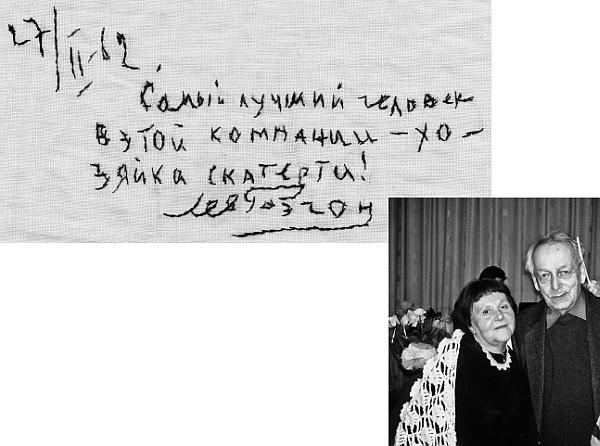 27/II-62.
Самый лучший человек
в этой компании – хо–
зяйка скатерти!
Лев Разгон